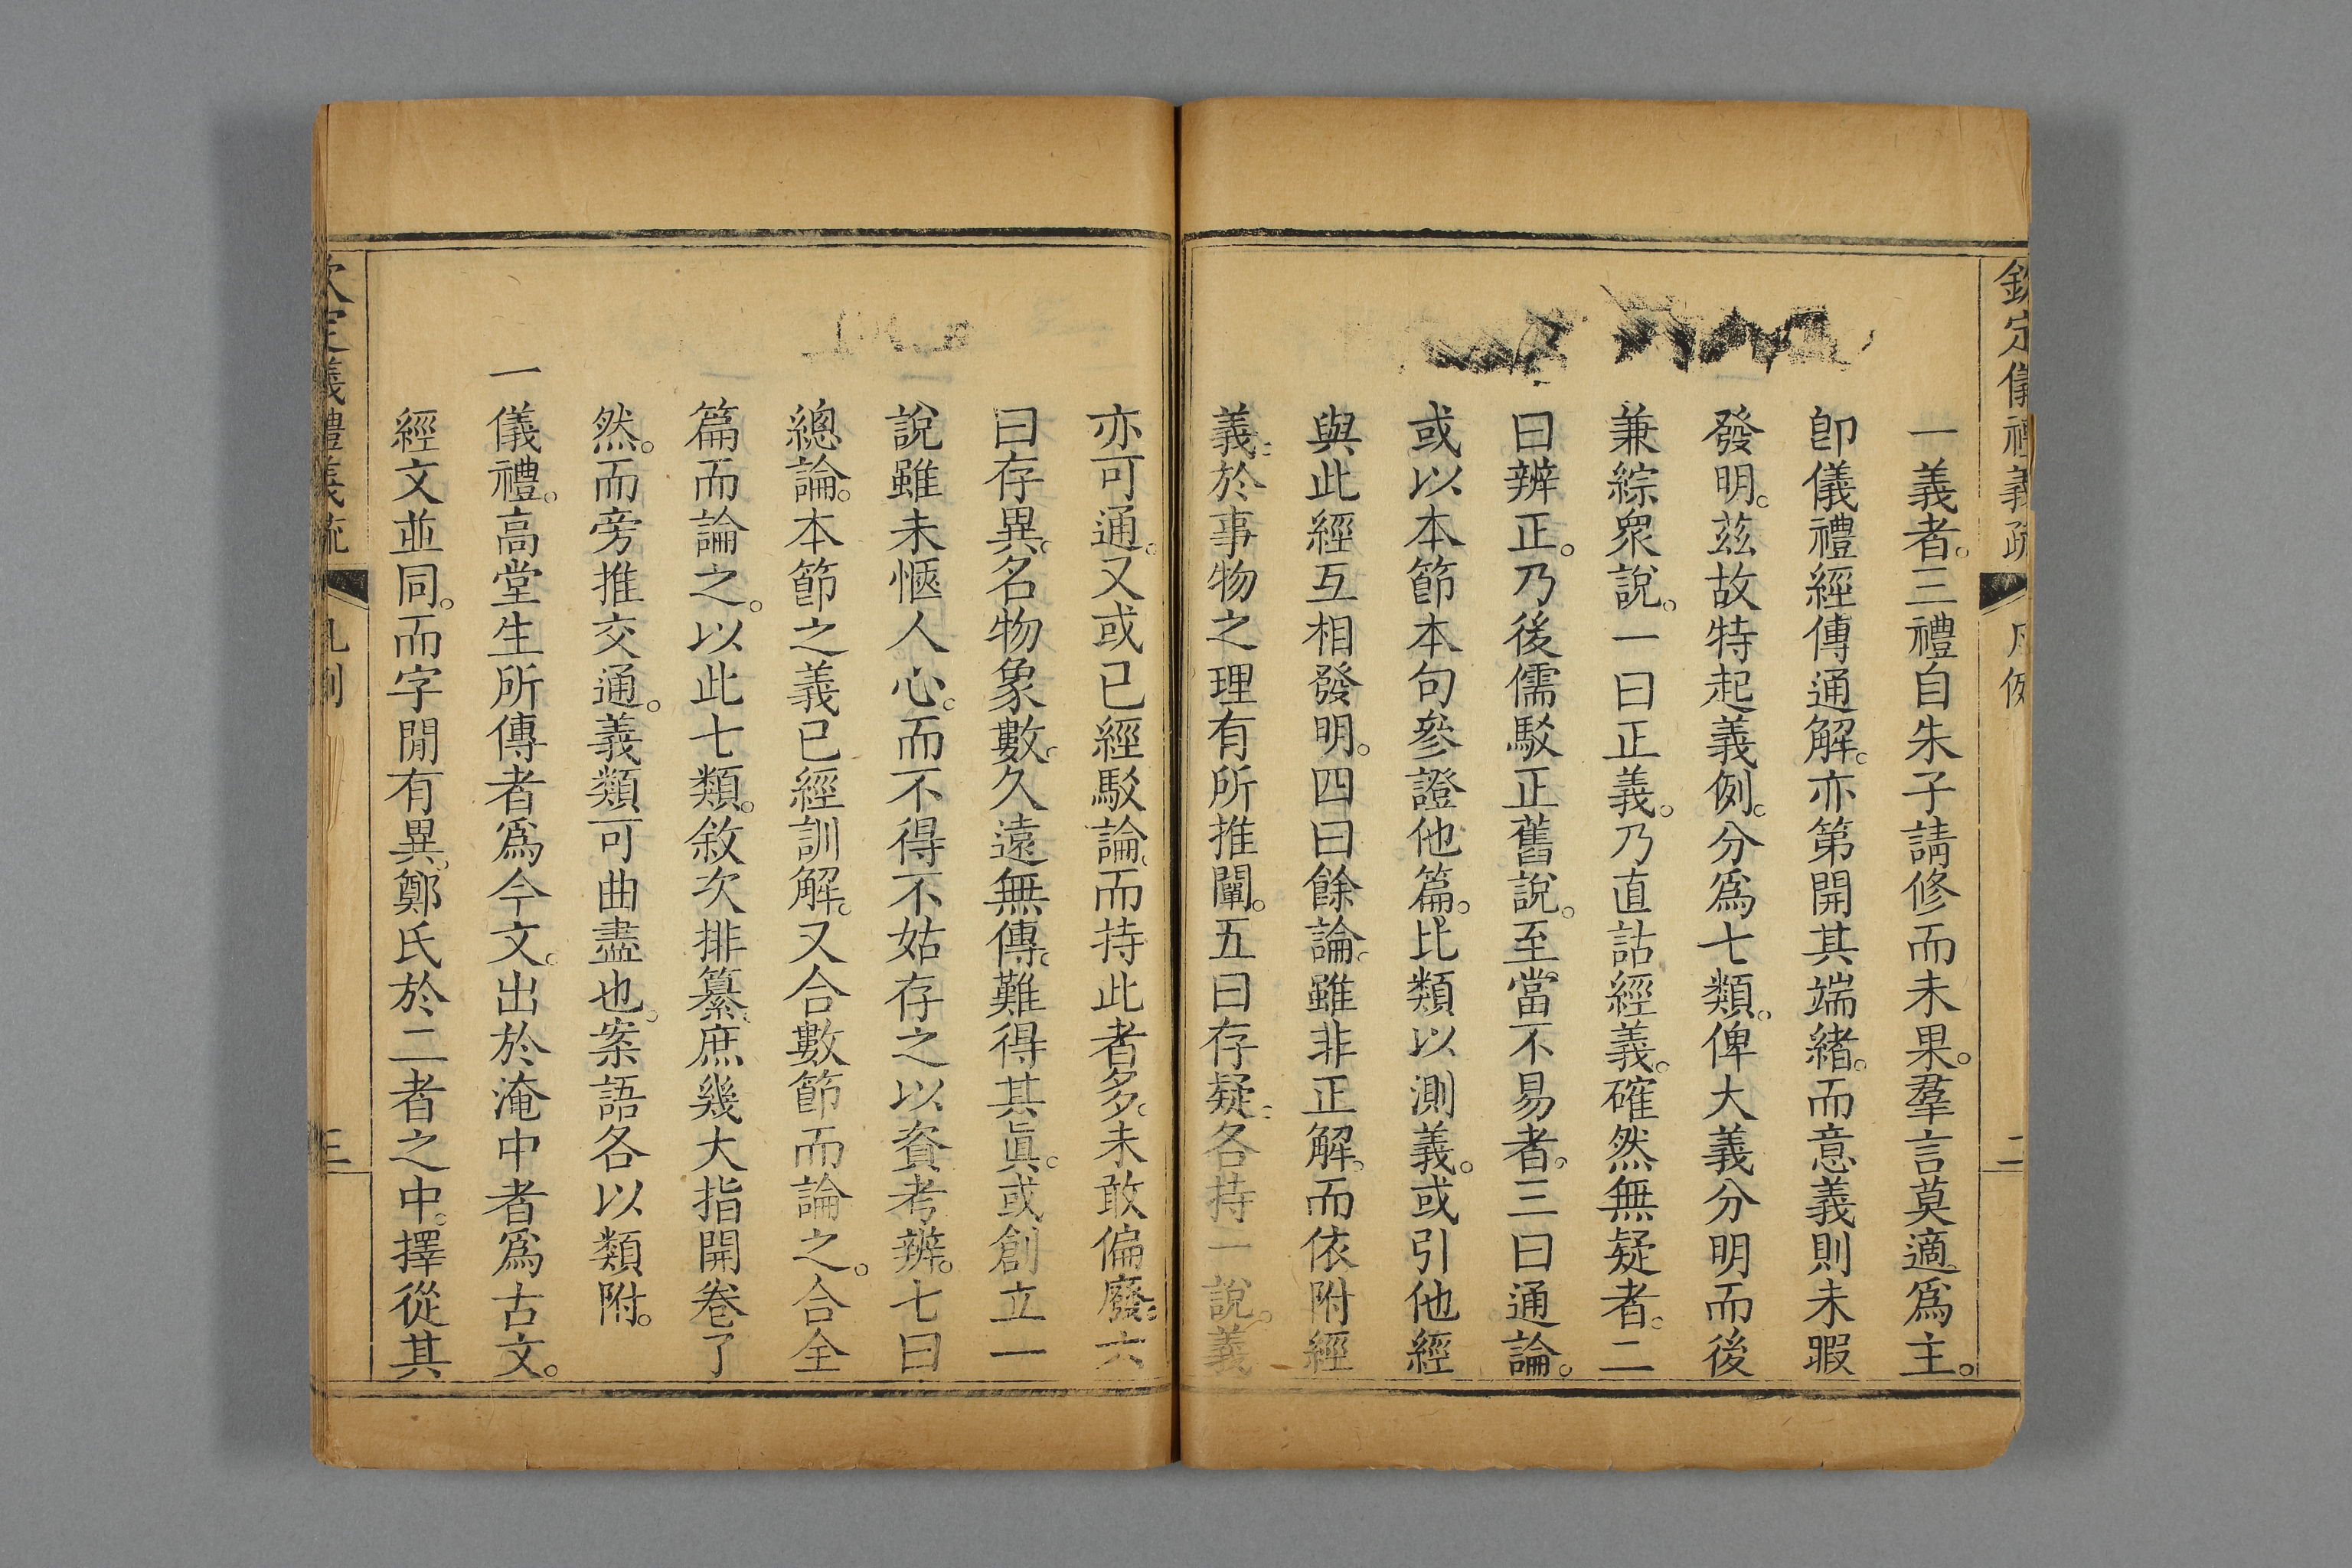 欽定儀禮義疏 凡例 二
一義者。三禮自朱子請修而未果。羣言莫適爲主。
卽儀禮經傳通解。亦第開其端緒。而意義則未暇
發明。茲故特起義例。分爲七類。俾大義分明而後
兼綜衆說。一曰正義。乃直詁經義。確然無疑者。二
曰辨正。乃後儒駁正舊說。至當不易者。三曰通論。
或以本節本句參證他篇。比類以測義。或引他經
與此經互相發明。四曰餘論。雖非正解。而依附經
義。於事物之理有所推闡。五曰存疑。各持一說。義
亦可通。又或已經駁論。而持此者多。未敢偏廢。六
曰存異。名物象數。久遠無傳。難得其眞。或創立一
說雖未愜人心。而不得不姑存之以資考辨。七曰
總論。本節之義已經訓解。又合數節而論之。合全
篇而論之。以此七類。敘次排纂。庶幾大指開卷了
然。而旁推交通。義類可曲盡也。案語各以類附。
一儀禮。高堂生所傳者爲今文。出於淹中者爲古文。
經文並同。而字閒有異。鄭氏於二者之中。擇從其
欽定儀禮義疏 凡例 三